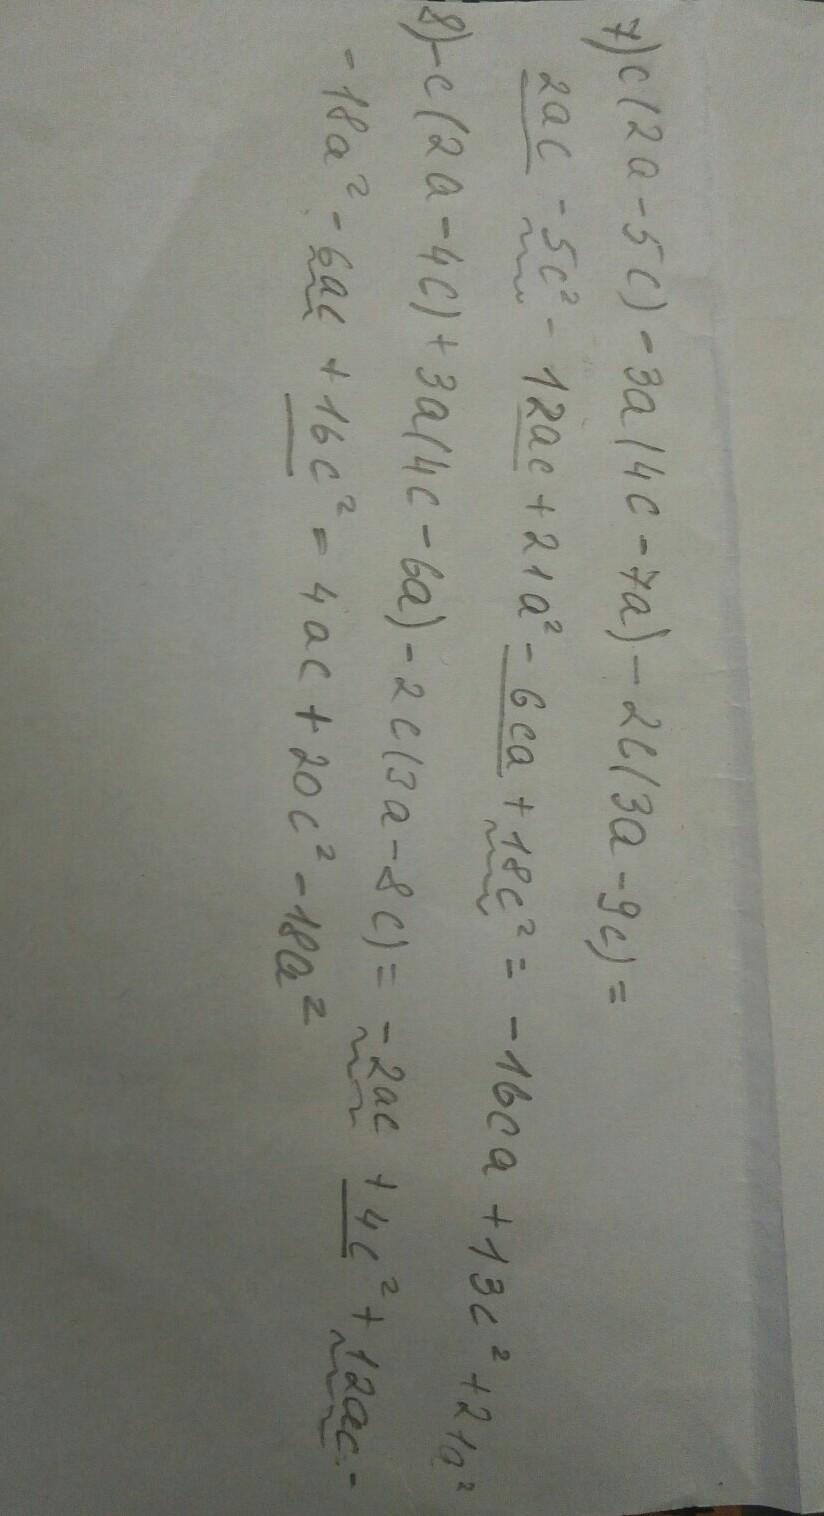 7) c(2a-5c)-3a(4c-7a)-2c(3a-9c)=
2ac-5c²-12ac+21a²-6ca+18c²=-16ca+13c²+21a²
8) -c(2a-4c)+3a(4c-6a)-2c(3a-8c)=-2ac+4c²+12ac-
-18a²-6ac+16c²=4ac+20c²-18a²